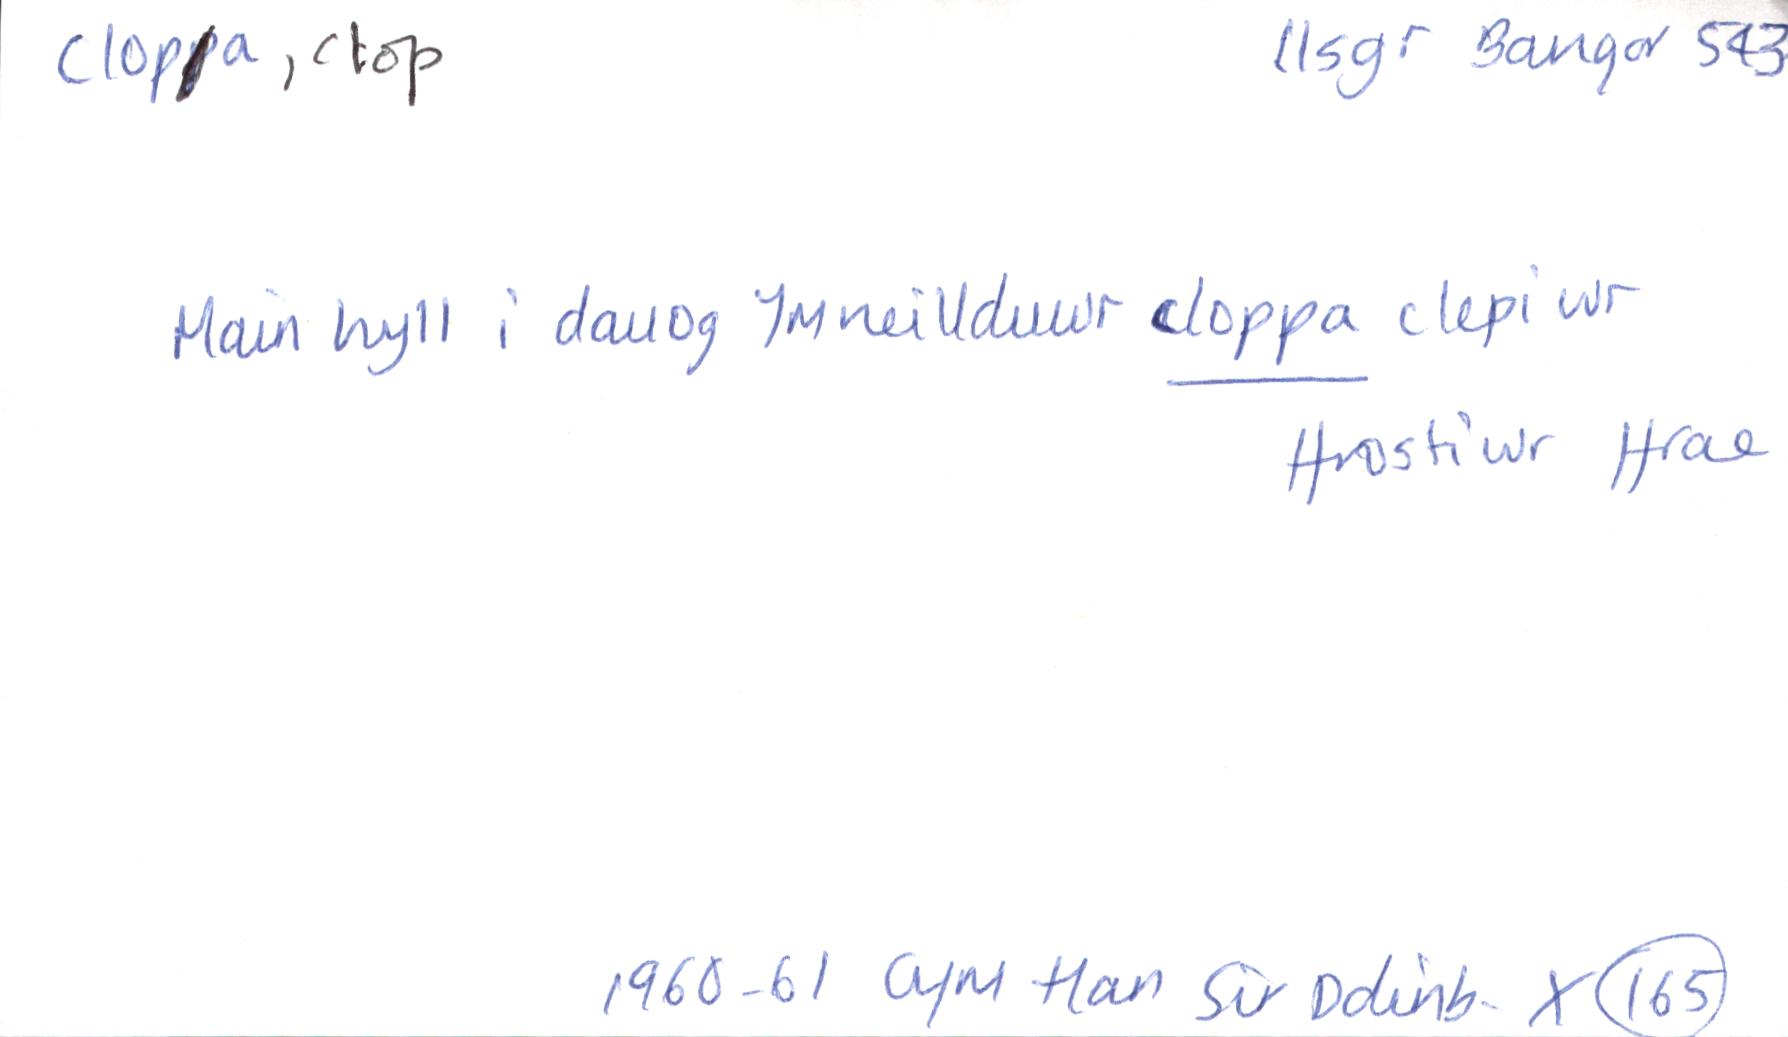 cloppa, clop llsgr Bangor 543
Main hyll i dauog Ymneillduwr cloppa clepiwr
ffrostiwr ffrae
1960-61 Cym Han Sir Ddinb. X 165